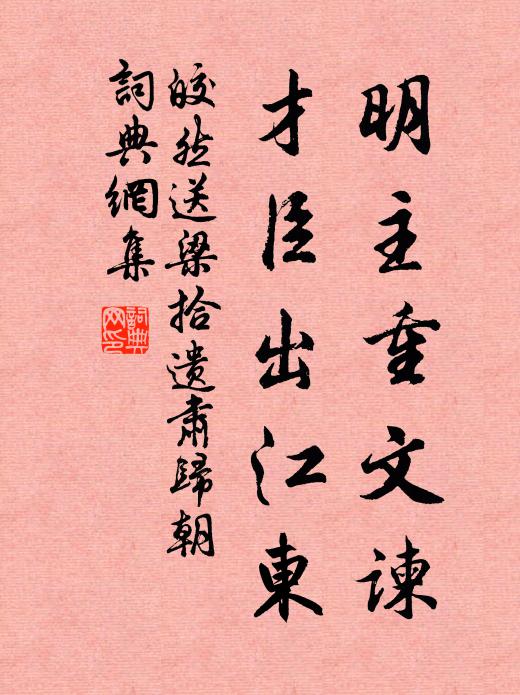 明主重文諫
才臣出江東
皎然送梁拾遺肅歸朝
詞典網集
詞典網印